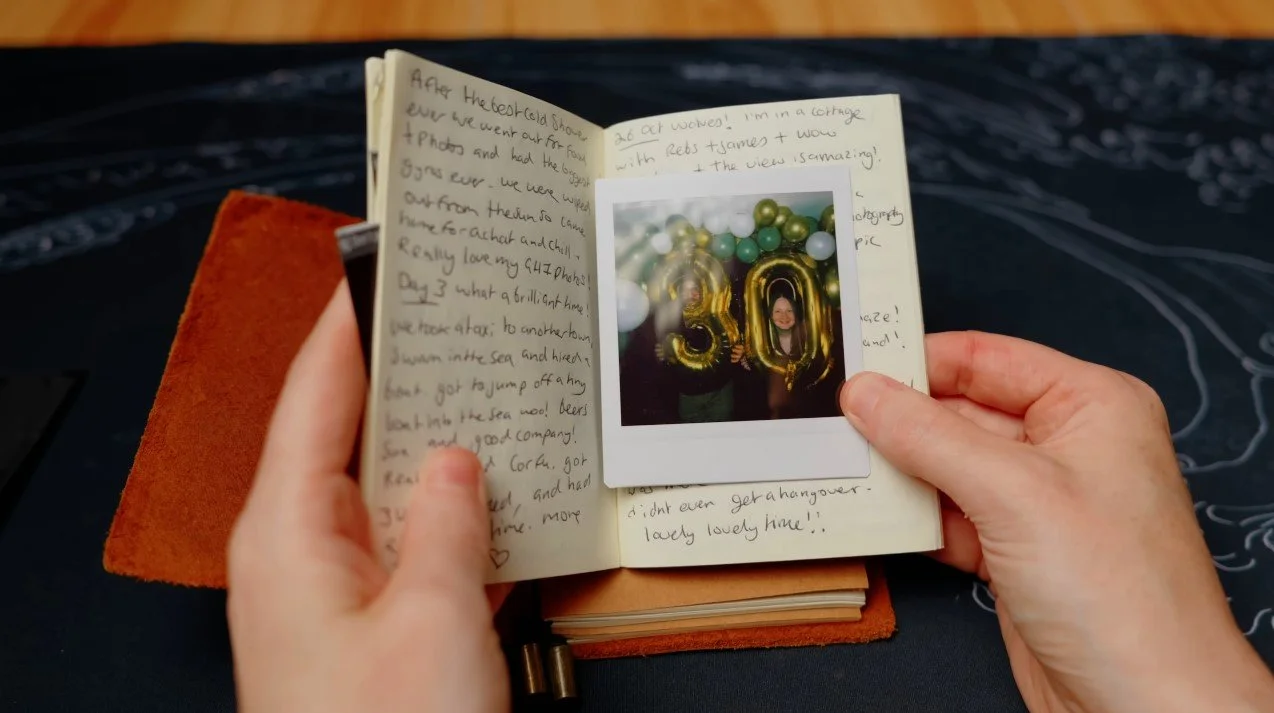 After the best cold shower
ever we went out for food
+ photos and had the biggest
gyros ever. we were wiped
out from the sun so came
home for a chat and chill.
Really love my photos!
Day 3 what a brilliant time!
we took a taxi to another town,
swam in the sea and hired a
boat. got to jump off a tiny
boat into the sea woo! beers
Sun and good company!
Corfu. got
and had
time. more
♡
26 Oct wolves! I'm in a cottage
with Rebs + James + wow
+ the view is amazing!
a
pic
30
didnt even get a hangover.
lovely lovely time!!